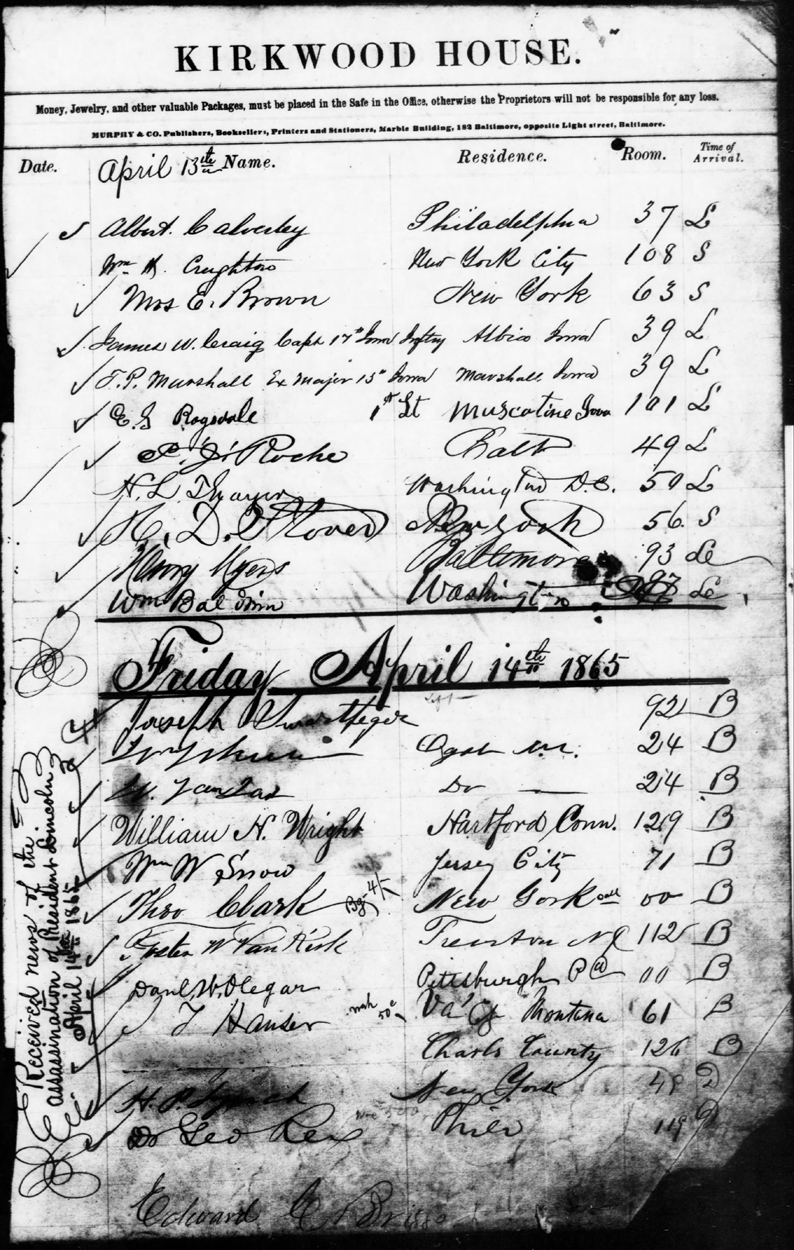 KIRKWOOD HOUSE.
Money, Jewelry, and other valuable Packages, must be placed in the Safe in the Office, otherwise the Proprietors will not be responsible for any loss.
MURPHY & CO. Publishers, Booksellers, Printers and Stationers, Marble Building, 182 Baltimore, opposite Light street, Baltimore.
Date. April 13th Name. Residence. Room. Time of Arrival.
Albert Calverley Philadelphia 37 L
Wm K. Creighton New York City 108 S
Mrs E. Brown New York 63 S
James W. Craig Capt 17th Iowa Infty Albia Iowa 39 L
T.P. Marshall Ex Major 15th Iowa Marshall Iowa 39 L
E.G. Ragsdale 1st Lt Muscatine Iowa 101 L
P. J. Roche Balt 49 L
H. L. Thayer Washington D.C. 50 L
D. New York 56 S
Henry Myers Baltimore 93 Le
Wm Baldwin Washington Le
Friday April 14th 1865
Joseph 92 B
24 B
Do 24 B
William H. Wright Hartford Conn. 129 B
Wm W Snow Jersey City 71 B
Theo Clark New York 00 B
Foster W Van Kirk Trenton NJ 112 B
Danl. W. Olegar Pittsburgh Pa 00 B
T Hauser Va City Montana 61 B
Charls County 126 B
H. P. New York 48 D
Dr Geo Rex Phila 119 D
Edward
Received news of the
assassination of President Lincoln
April 14th 1865